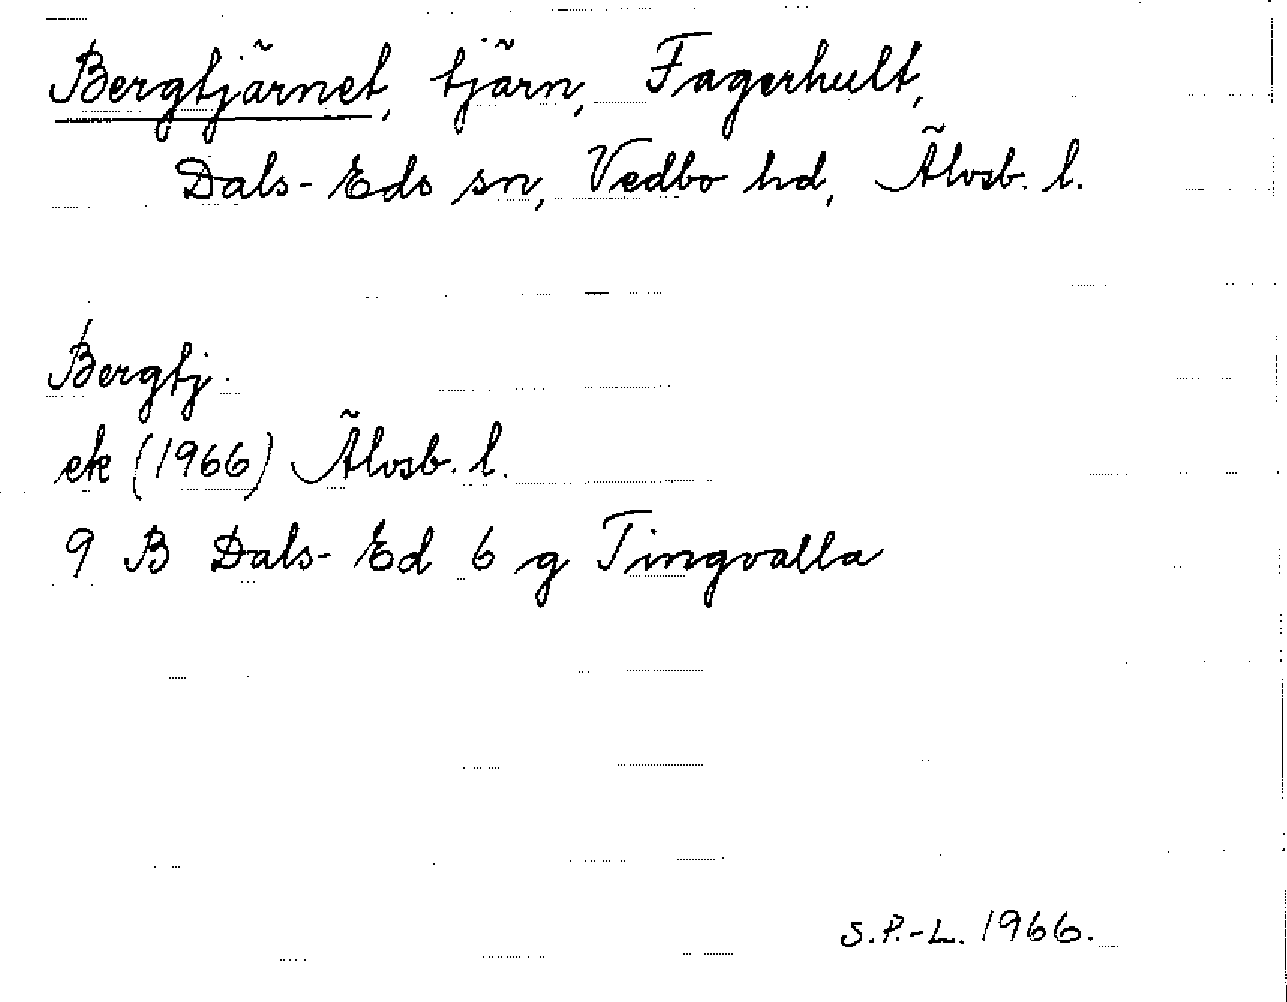 Bergtjärnet, tjärn, Fagerhult,
Dals-Eds sn, Vedbo hd, Älvsb. l.
Bergtj.
ek (1966) Älvsb. l.
9 B Dals-Ed 6 g Tingvalla
S.P.-L. 1966.